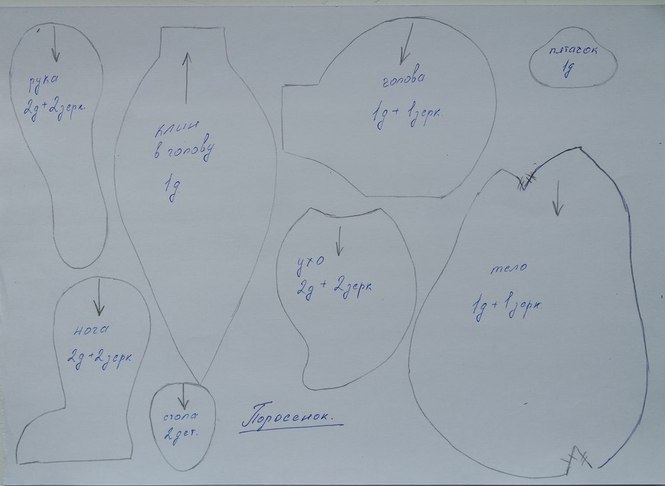 рука
2д+2зерк.
клин
в голову
1д
голова
1д+1зерк.
пятачок
1д
ухо
2д+2зерк
тело
1д+1зерк
нога
2д+2зерк
стопа
2дет.
Поросенок.